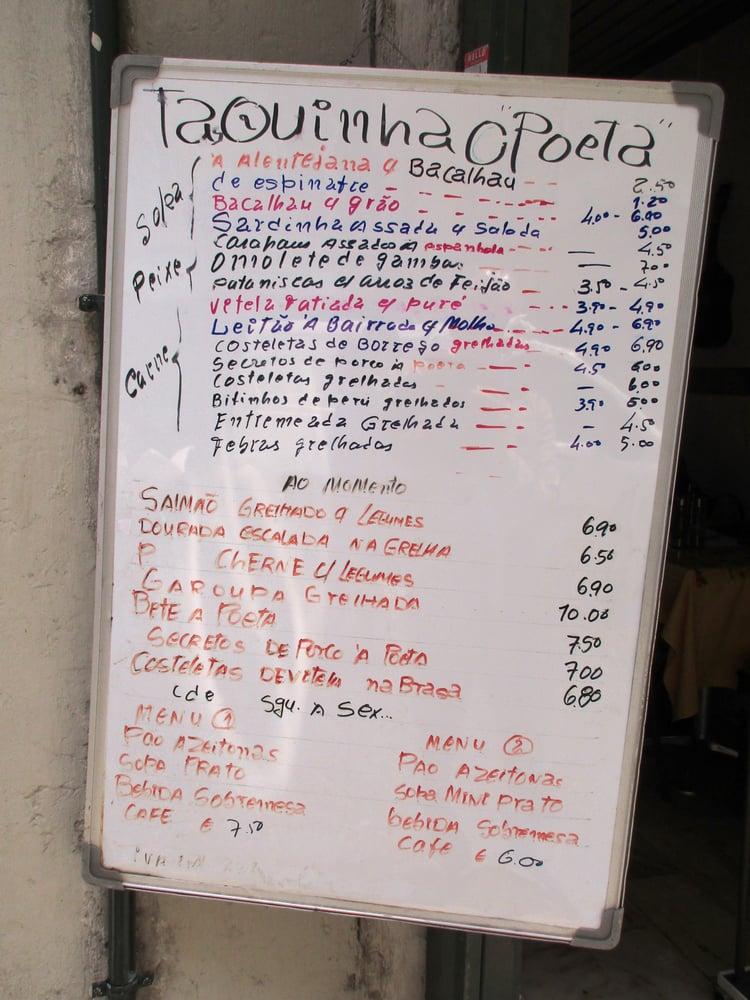 TaQuinha O "Poeta"
Sopa
Peixe
Carne
A Alentejana c/ Bacalhau -- 2.50
de espinafre -- 1.20
Bacalhau c/ grão ---- 4.00 - 6.00
Sardinha Assada c/ Salada 5.00
Carapaus Assados à espanhola --- — 4.50
Omolete de gambas — 7.00
pataniscas c/ arroz de Feijão 3.50 - 4.50
Vetela Fatiada c/ puré --- 3.90 - 4.90
Leitão A Bairrada c/ Molho --- 4.90 - 6.90
Costeletas de Borrego grelhadas 4.90 6.90
Secretos de porco à poeta 4.5 6.00
Costeletas grelhadas -- — 6.00
Bifinhos de perú grelhados -- 3.90 5.00
Entremeada Grelhada -- — 4.50
Febras grelhadas -- 4.00 5.00
AO MOMENTO
SALMÃO GRELHADO c/ LEGUMES 6.90
DOURADA ESCALADA NA GRELHA 6.50
P CHERNE C/ LEGUMES 6.90
GAROUPA GRELHADA 10.00
BEFE A POETA 7.50
SECRETOS DE PORCO 'A POETA 7.00
COSTELETAS DE VITELA na Brasa 6.80
( de Sgu. A Sex...
MENU ①
PAO AZEITONAS
SOPA PRATO
BEBIDA Sobremesa
CAFE € 7.50
MENU ②
PAO AZEITONAS
SOPA MINI PRATO
BEBIDA Sobremesa
Café € 6.00
IVA
HELLO